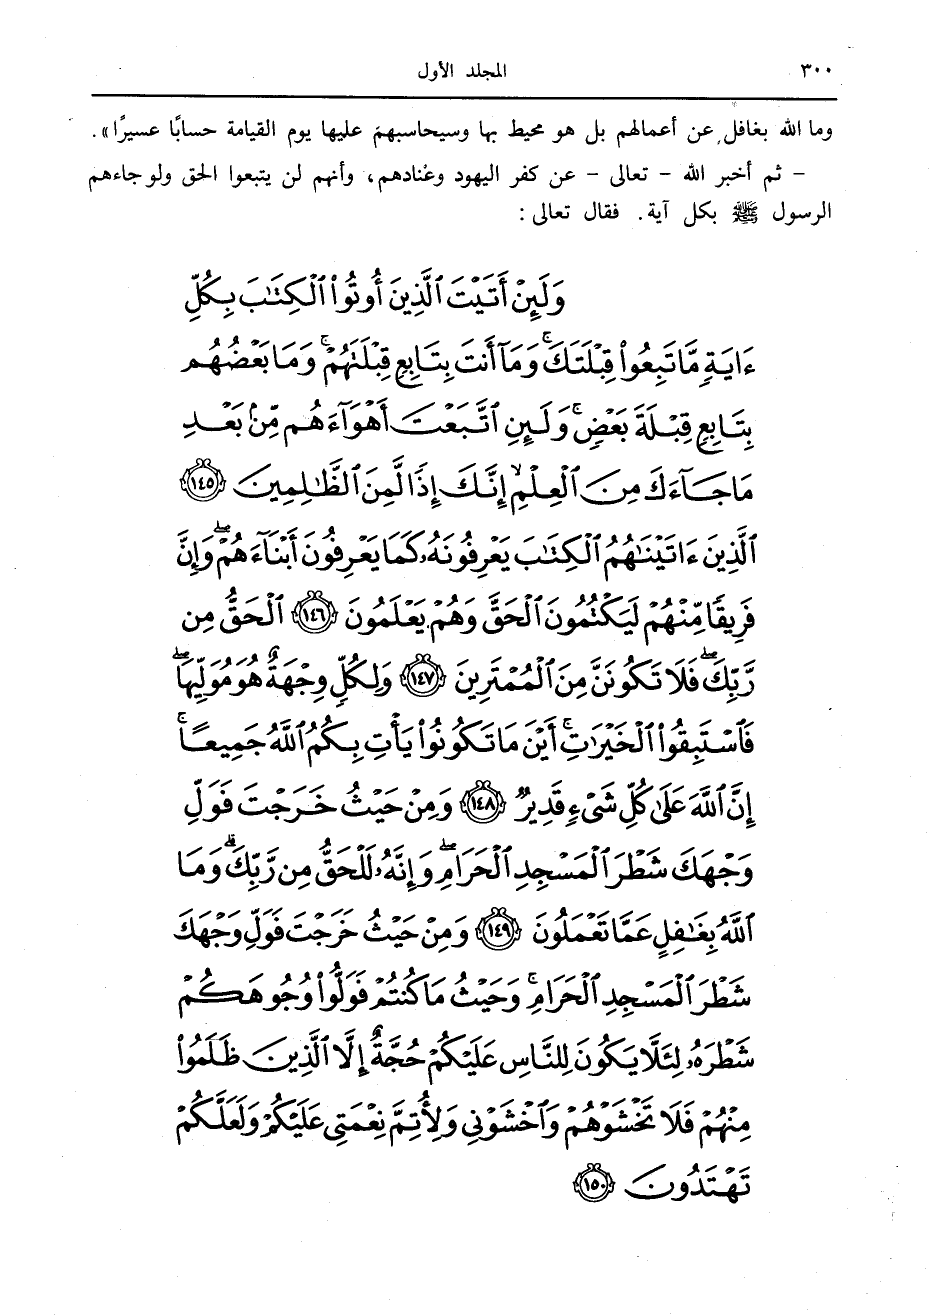 ٣٠٠ المجلد الأول
وما الله بغافل عن أعمالهم بل هو محيط بها وسيحاسبهم عليها يوم القيامة حسابًا عسيرًا».
– ثم أخبر الله – تعالى – عن كفر اليهود وعنادهم، وأنهم لن يتبعوا الحق ولو جاءهم
الرسول ﷺ بكل آية. فقال تعالى:
وَلَئِنْ أَتَيْتَ ٱلَّذِينَ أُوتُوا۟ ٱلْكِتَٰبَ بِكُلِّ
ءَايَةٍ مَّا تَبِعُوا۟ قِبْلَتَكَ ۚ وَمَآ أَنتَ بِتَابِعٍ قِبْلَتَهُمْ ۚ وَمَا بَعْضُهُم
بِتَابِعٍ قِبْلَةَ بَعْضٍ ۚ وَلَئِنِ ٱتَّبَعْتَ أَهْوَآءَهُم مِّنۢ بَعْدِ
مَا جَآءَكَ مِنَ ٱلْعِلْمِ ۙ إِنَّكَ إِذًا لَّمِنَ ٱلظَّٰلِمِينَ ١٤٥
ٱلَّذِينَ ءَاتَيْنَٰهُمُ ٱلْكِتَٰبَ يَعْرِفُونَهُۥ كَمَا يَعْرِفُونَ أَبْنَآءَهُمْ ۖ وَإِنَّ
فَرِيقًا مِّنْهُمْ لَيَكْتُمُونَ ٱلْحَقَّ وَهُمْ يَعْلَمُونَ ١٤٦ ٱلْحَقُّ مِن
رَّبِّكَ ۖ فَلَا تَكُونَنَّ مِنَ ٱلْمُمْتَرِينَ ١٤٧ وَلِكُلٍّ وِجْهَةٌ هُوَ مُوَلِّيهَا ۖ
فَٱسْتَبِقُوا۟ ٱلْخَيْرَٰتِ ۚ أَيْنَ مَا تَكُونُوا۟ يَأْتِ بِكُمُ ٱللَّهُ جَمِيعًا ۚ
إِنَّ ٱللَّهَ عَلَىٰ كُلِّ شَىْءٍ قَدِيرٌ ١٤٨ وَمِنْ حَيْثُ خَرَجْتَ فَوَلِّ
وَجْهَكَ شَطْرَ ٱلْمَسْجِدِ ٱلْحَرَامِ ۖ وَإِنَّهُۥ لَلْحَقُّ مِن رَّبِّكَ ۗ وَمَا
ٱللَّهُ بِغَٰفِلٍ عَمَّا تَعْمَلُونَ ١٤٩ وَمِنْ حَيْثُ خَرَجْتَ فَوَلِّ وَجْهَكَ
شَطْرَ ٱلْمَسْجِدِ ٱلْحَرَامِ ۚ وَحَيْثُ مَا كُنتُمْ فَوَلُّوا۟ وُجُوهَكُمْ
شَطْرَهُۥ لِئَلَّا يَكُونَ لِلنَّاسِ عَلَيْكُمْ حُجَّةٌ إِلَّا ٱلَّذِينَ ظَلَمُوا۟
مِنْهُمْ فَلَا تَخْشَوْهُمْ وَٱخْشَوْنِى وَلِأُتِمَّ نِعْمَتِى عَلَيْكُمْ وَلَعَلَّكُمْ
تَهْتَدُونَ ١٥٠